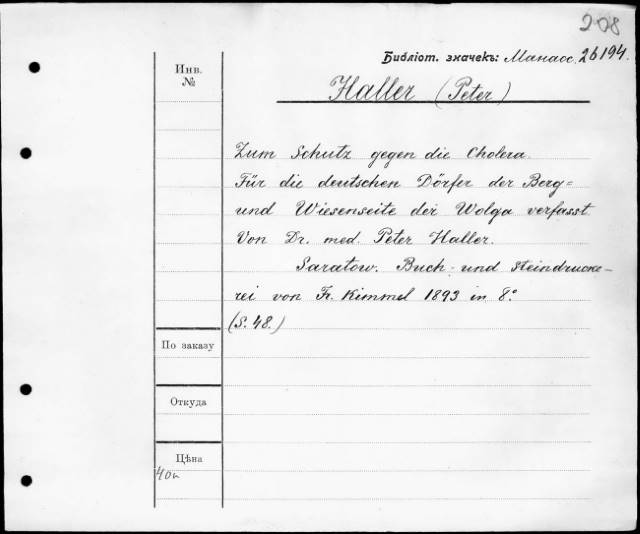 208
Библіот. значекъ: Манаос. 26194.
Инв.
№
Haller (Peter)
Zum Schutz gegen die Cholera.
Für die deutschen Dörfer der Berg=
und Wiesenseite der Wolga verfasst
Von Dr. med. Peter Haller.
Saratow. Buch- und Steindrucke-
rei von Fr. Kimmel 1893 in 8.°
(S. 48.)
По заказу
Откуда
Цѣна
40к